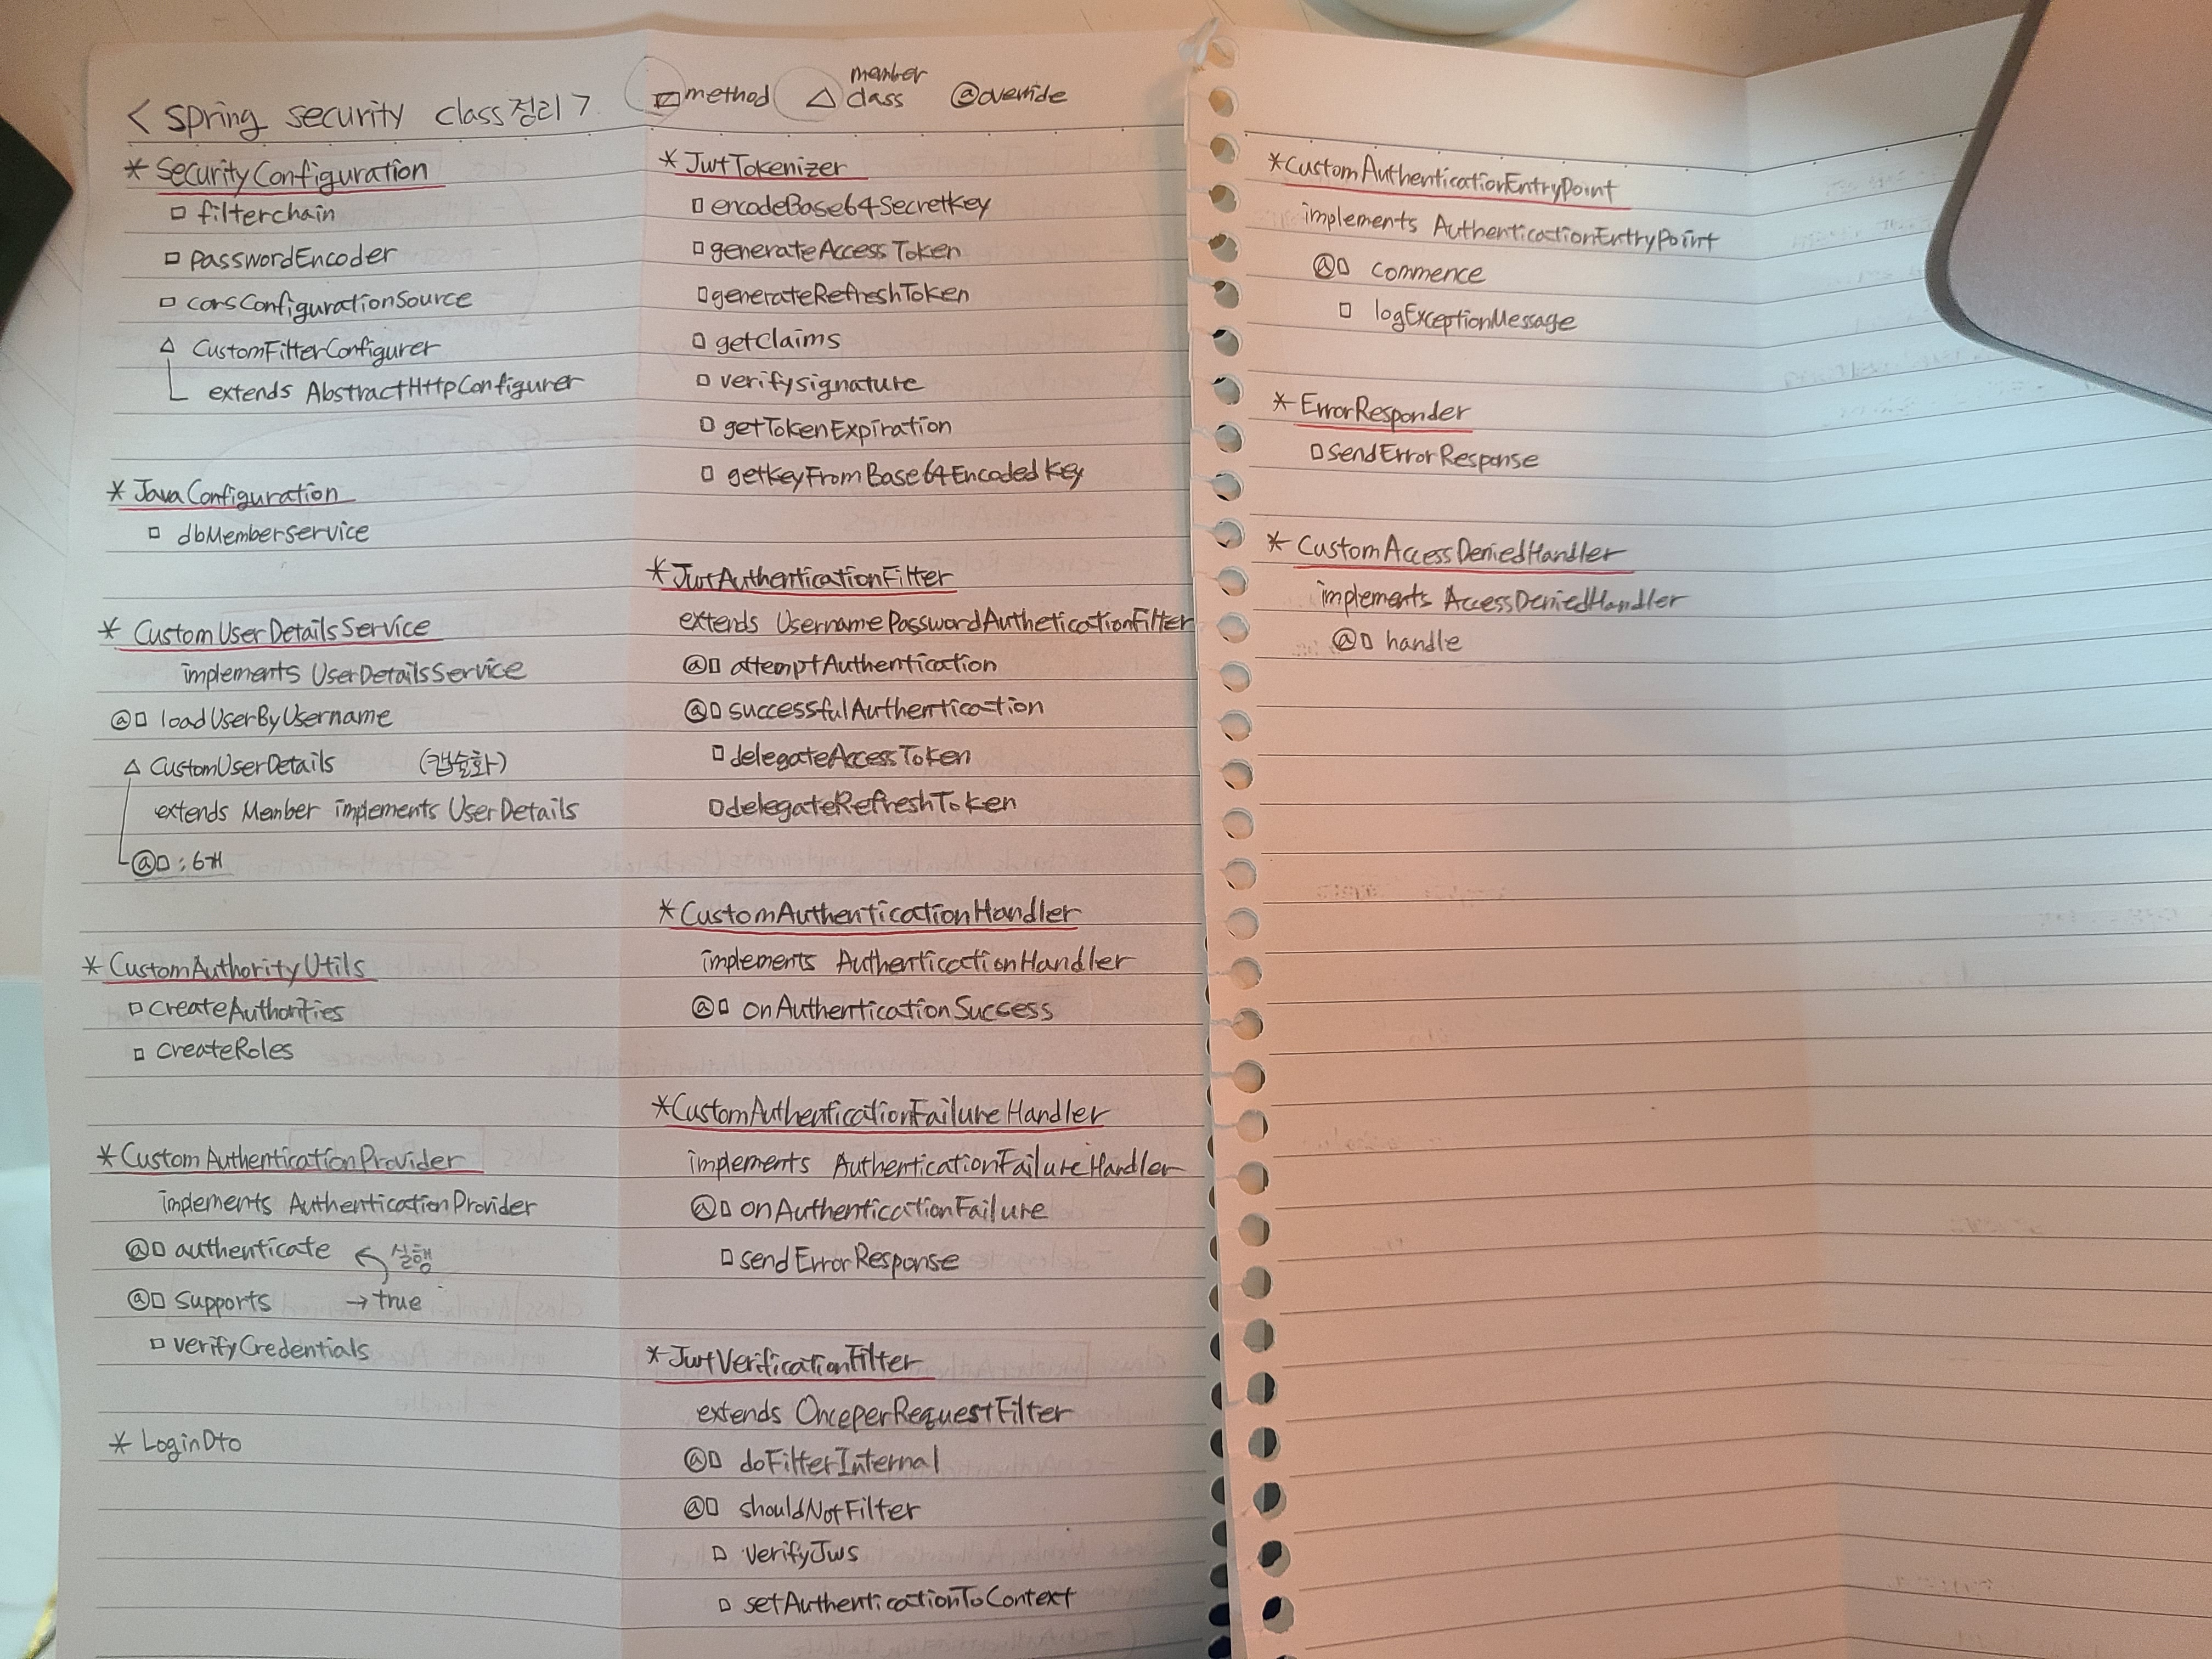 < spring security class정리 >
□ method △ member class @override
* SecurityConfiguration
□ filterchain
□ passwordEncoder
□ corsConfigurationSource
△ CustomFilterConfigurer
extends AbstractHttpConfigurer
* JavaConfiguration
□ dbMemberService
* CustomUserDetailsService
implements UserDetailsService
@□ loadUserByUsername
△ CustomUserDetails (캡슐화)
extends Member implements UserDetails
@□ : 6개
* CustomAuthorityUtils
□ createAuthorities
□ createRoles
* CustomAuthenticationProvider
implements AuthenticationProvider
@□ authenticate ← 실행
@□ supports → true
□ verifyCredentials
* LoginDto
* JwtTokenizer
□ encodeBase64SecretKey
□ generateAccessToken
□ generateRefreshToken
□ getClaims
□ verifysignature
□ getTokenExpiration
□ getKeyFromBase64EncodedKey
* JwtAuthenticationFilter
extends UsernamePasswordAutheticationFilter
@□ attemptAuthentication
@□ successfulAuthentication
□ delegateAccessToken
□ delegateRefreshToken
* CustomAuthenticationHandler
implements AuthenticationHandler
@□ onAuthenticationSuccess
* CustomAuthenticationFailureHandler
implements AuthenticationFailureHandler
@□ onAuthenticationFailure
□ sendErrorResponse
* JwtVerificationFilter
extends OnceperRequestFilter
@□ doFilterInternal
@□ shouldNotFilter
□ verifyJws
□ setAuthenticationToContext
* CustomAuthenticationEntryPoint
implements AuthenticationEntryPoint
@□ commence
□ logExceptionMessage
* ErrorResponder
□ sendErrorResponse
* CustomAccessDeniedHandler
implements AccessDeniedHandler
@□ handle